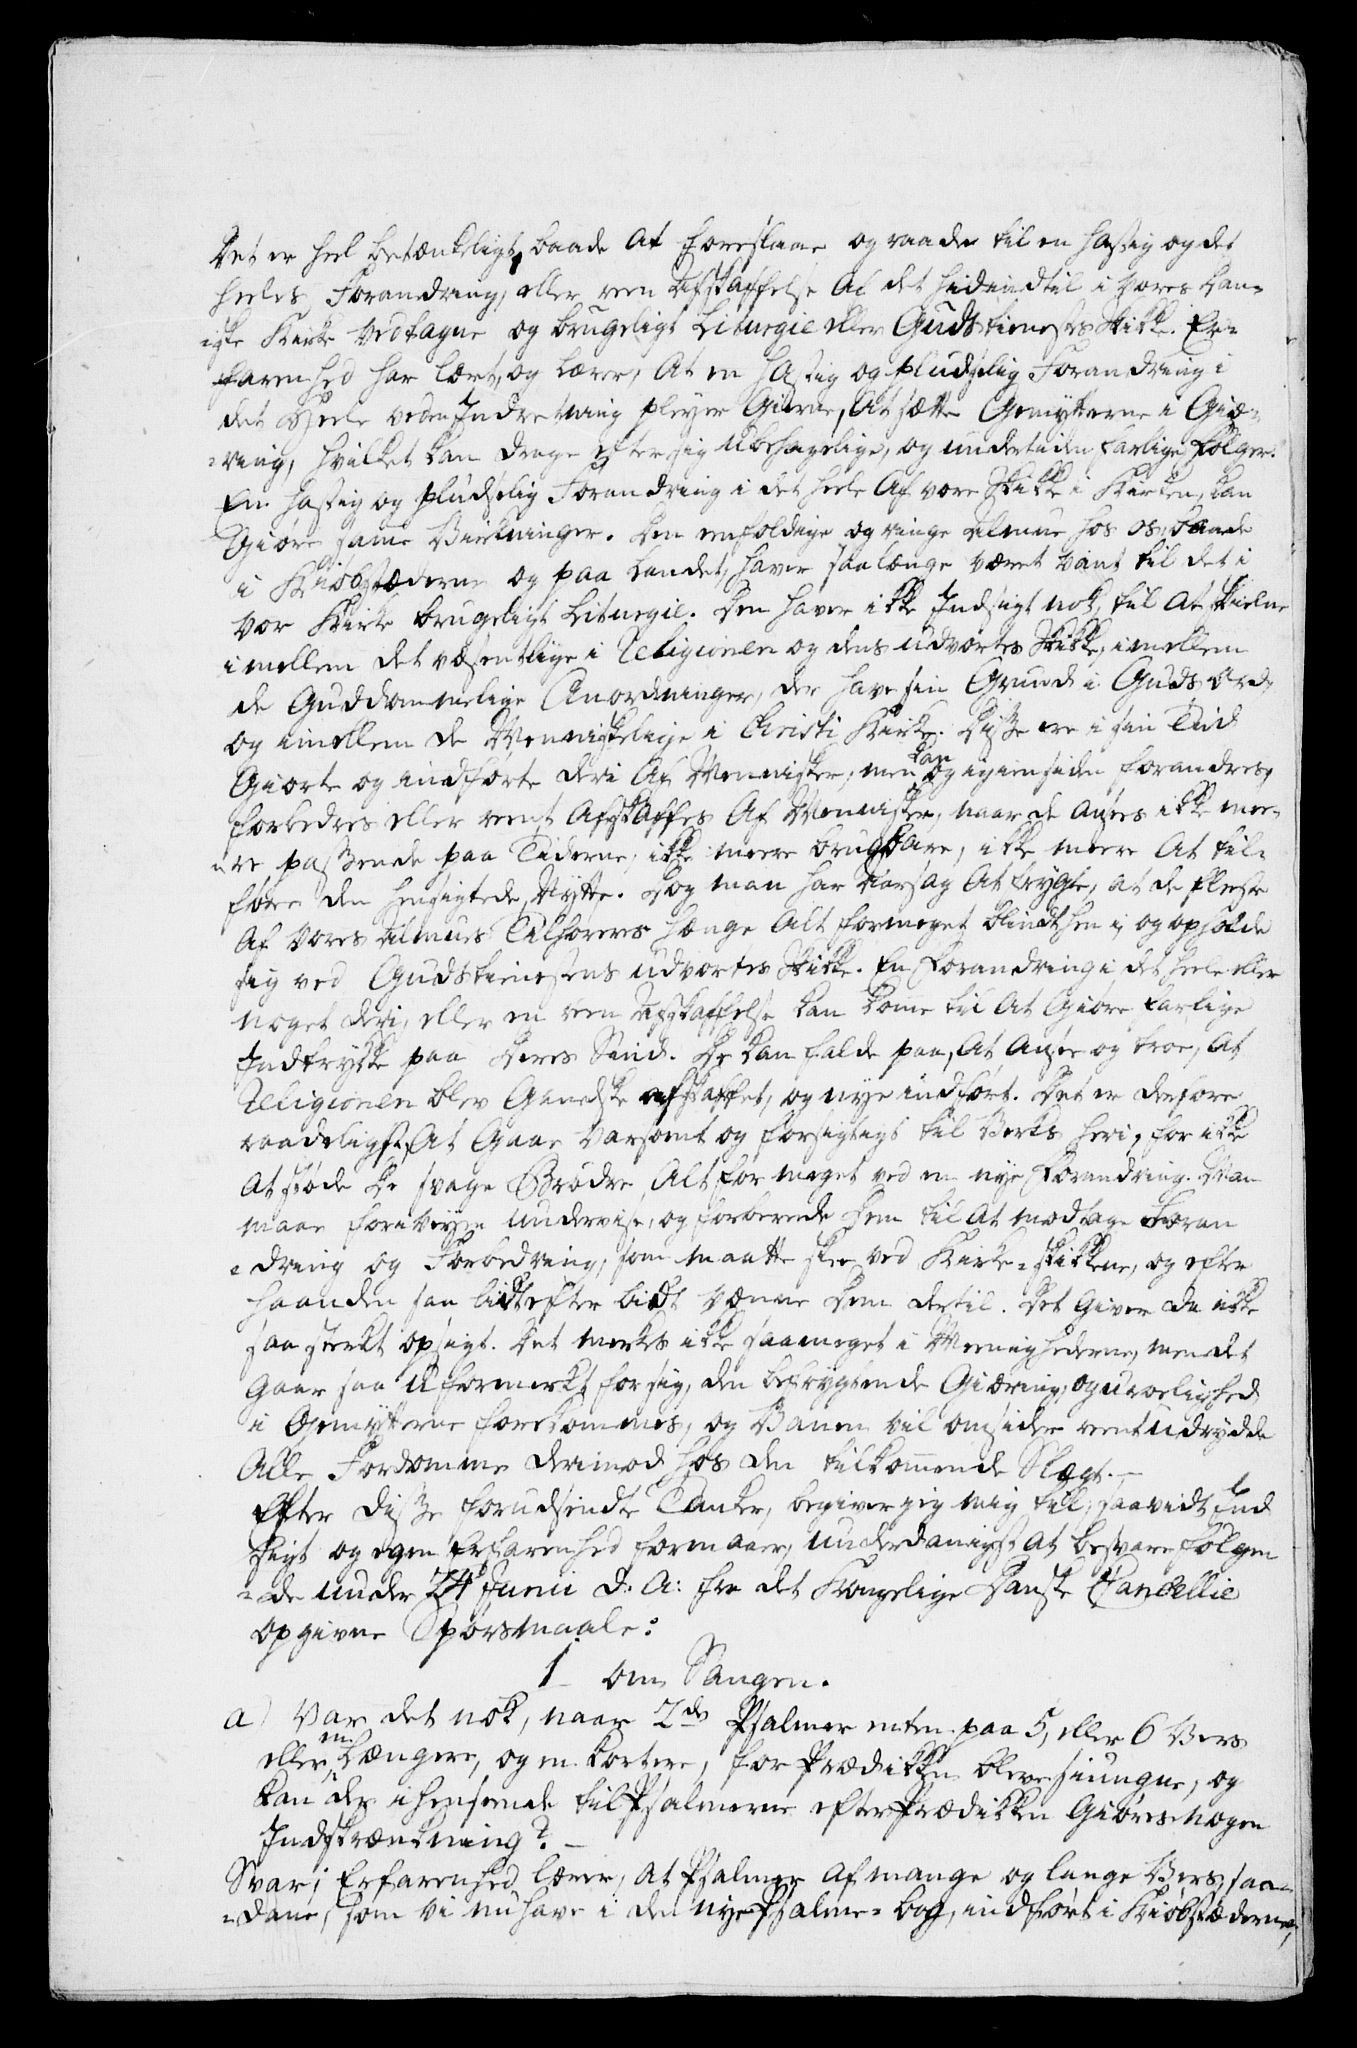 Det er heel betænkeligt, baade at foreslaae og raade til en hastig og det
heeles Forandring, eller reen Afskaffelse af det hidindtil i vores Dan=
=ske Kirke vedtagne og brugeligt Liturgie eller Gudstienestes Skikke. Er=
farenhed har lært, og lærer, at en hastig og pludselig Forandring i
det Heele ved en Indretning pleyer Gierne, at sætte Gemytterne i Giæ=
=ring, hvilket kan drage efter sig ubehagelige, og undertiden farlige Følger.
En hastig og pludselig Forandring i det heele af vore Skikke i Kirken, kan
Giøre same Virkninger. Den eenfoldige og ringe Almue hos os, baade
i Kiøbstæderne og paa Landet, haver saa længe været vant til det i
vor Kirke brugeligt Liturgie. Den haver ikke Indsigt nok, til at skielne
imellem det væsentlige i Religionen og dens udvortes Skikke, imellem
de Guddommelige Anordninger, der have sin Grund i Guds Ord,
og imellem de Menniskelige i Christi Kirke. Disse ere i sin Tid
Giorte og indførte deri af Mennisker, men kan og igiensiden forandres,
forbedres eller reent afskaffes af Mennisker, naar de ansees ikke mee=
=re passende paa Tiderne, ikke meere brugbare, ikke meere at til=
føre den hensigtede Nytte. Dog man har Aarsag at frygte, at de fleste
af vores Almues Tilhørere hænge alt formeget blindthen i, og opholde
sig ved Gudstienestens udvortes Skikke. En Forandring i det heele eller
noget deri, eller en reen Afskaffelse kan kome til at Giøre farlige
Indtrykke paa Deres Sind. De kan falde paa, at ansee og troe, at
Religionen blev Gandske afskaffet, og nye indført. Det er derfore
raadeligst, at Gaae varsomt og forsigtigt til Verks heri, for ikke
at støde de svage Brødre alt for meget ved en nye Forandring. Man
maae forud undervise, og forberede dem til at modtage Foran
=dring og Forbedring, som maatte skee ved Kirke=skikkene, og efter
haanden saa lidt efter lidt vænne dem dertil. Det Giver da ikke
saa sterkt opsigt. Det merkes ikke saameget i Meenighederne, men det
Gaar saa uformerkt for sig, den befrygtende Giæring, og uroelighed
i Gemytterne forekommes, og Vanen vil omsider reent udrydde
Alle Fordomme derimod hos den tilkomende Slægt. –
Efter disse forudsendte Tanker, begiver jeg mig til, saavidt Ind
sigt og egen Erfarenhed formaaer, underdanigst at besvare følgen
=de under 24 Junii d: A: fra det Kongelige Danske Cancellie
opgivne Spørsmaale:
1 – om Sangen.
a) Var det nok, naar 2de Psalmer enten paa 5, eller 6 Vers
eller en Længere, og en kortere, for Prædikken bleve siungne, og
kan der i henseende til Psalmerne efter Prædikken Giøres nogen
Indskrænkning? –
Svar; Erfarenhed lærer, at Psalmer af mange og lange Vers, saa=
=dane, som vi nu have i den nye Psalme=bog, indført i Kiøbstæderne,